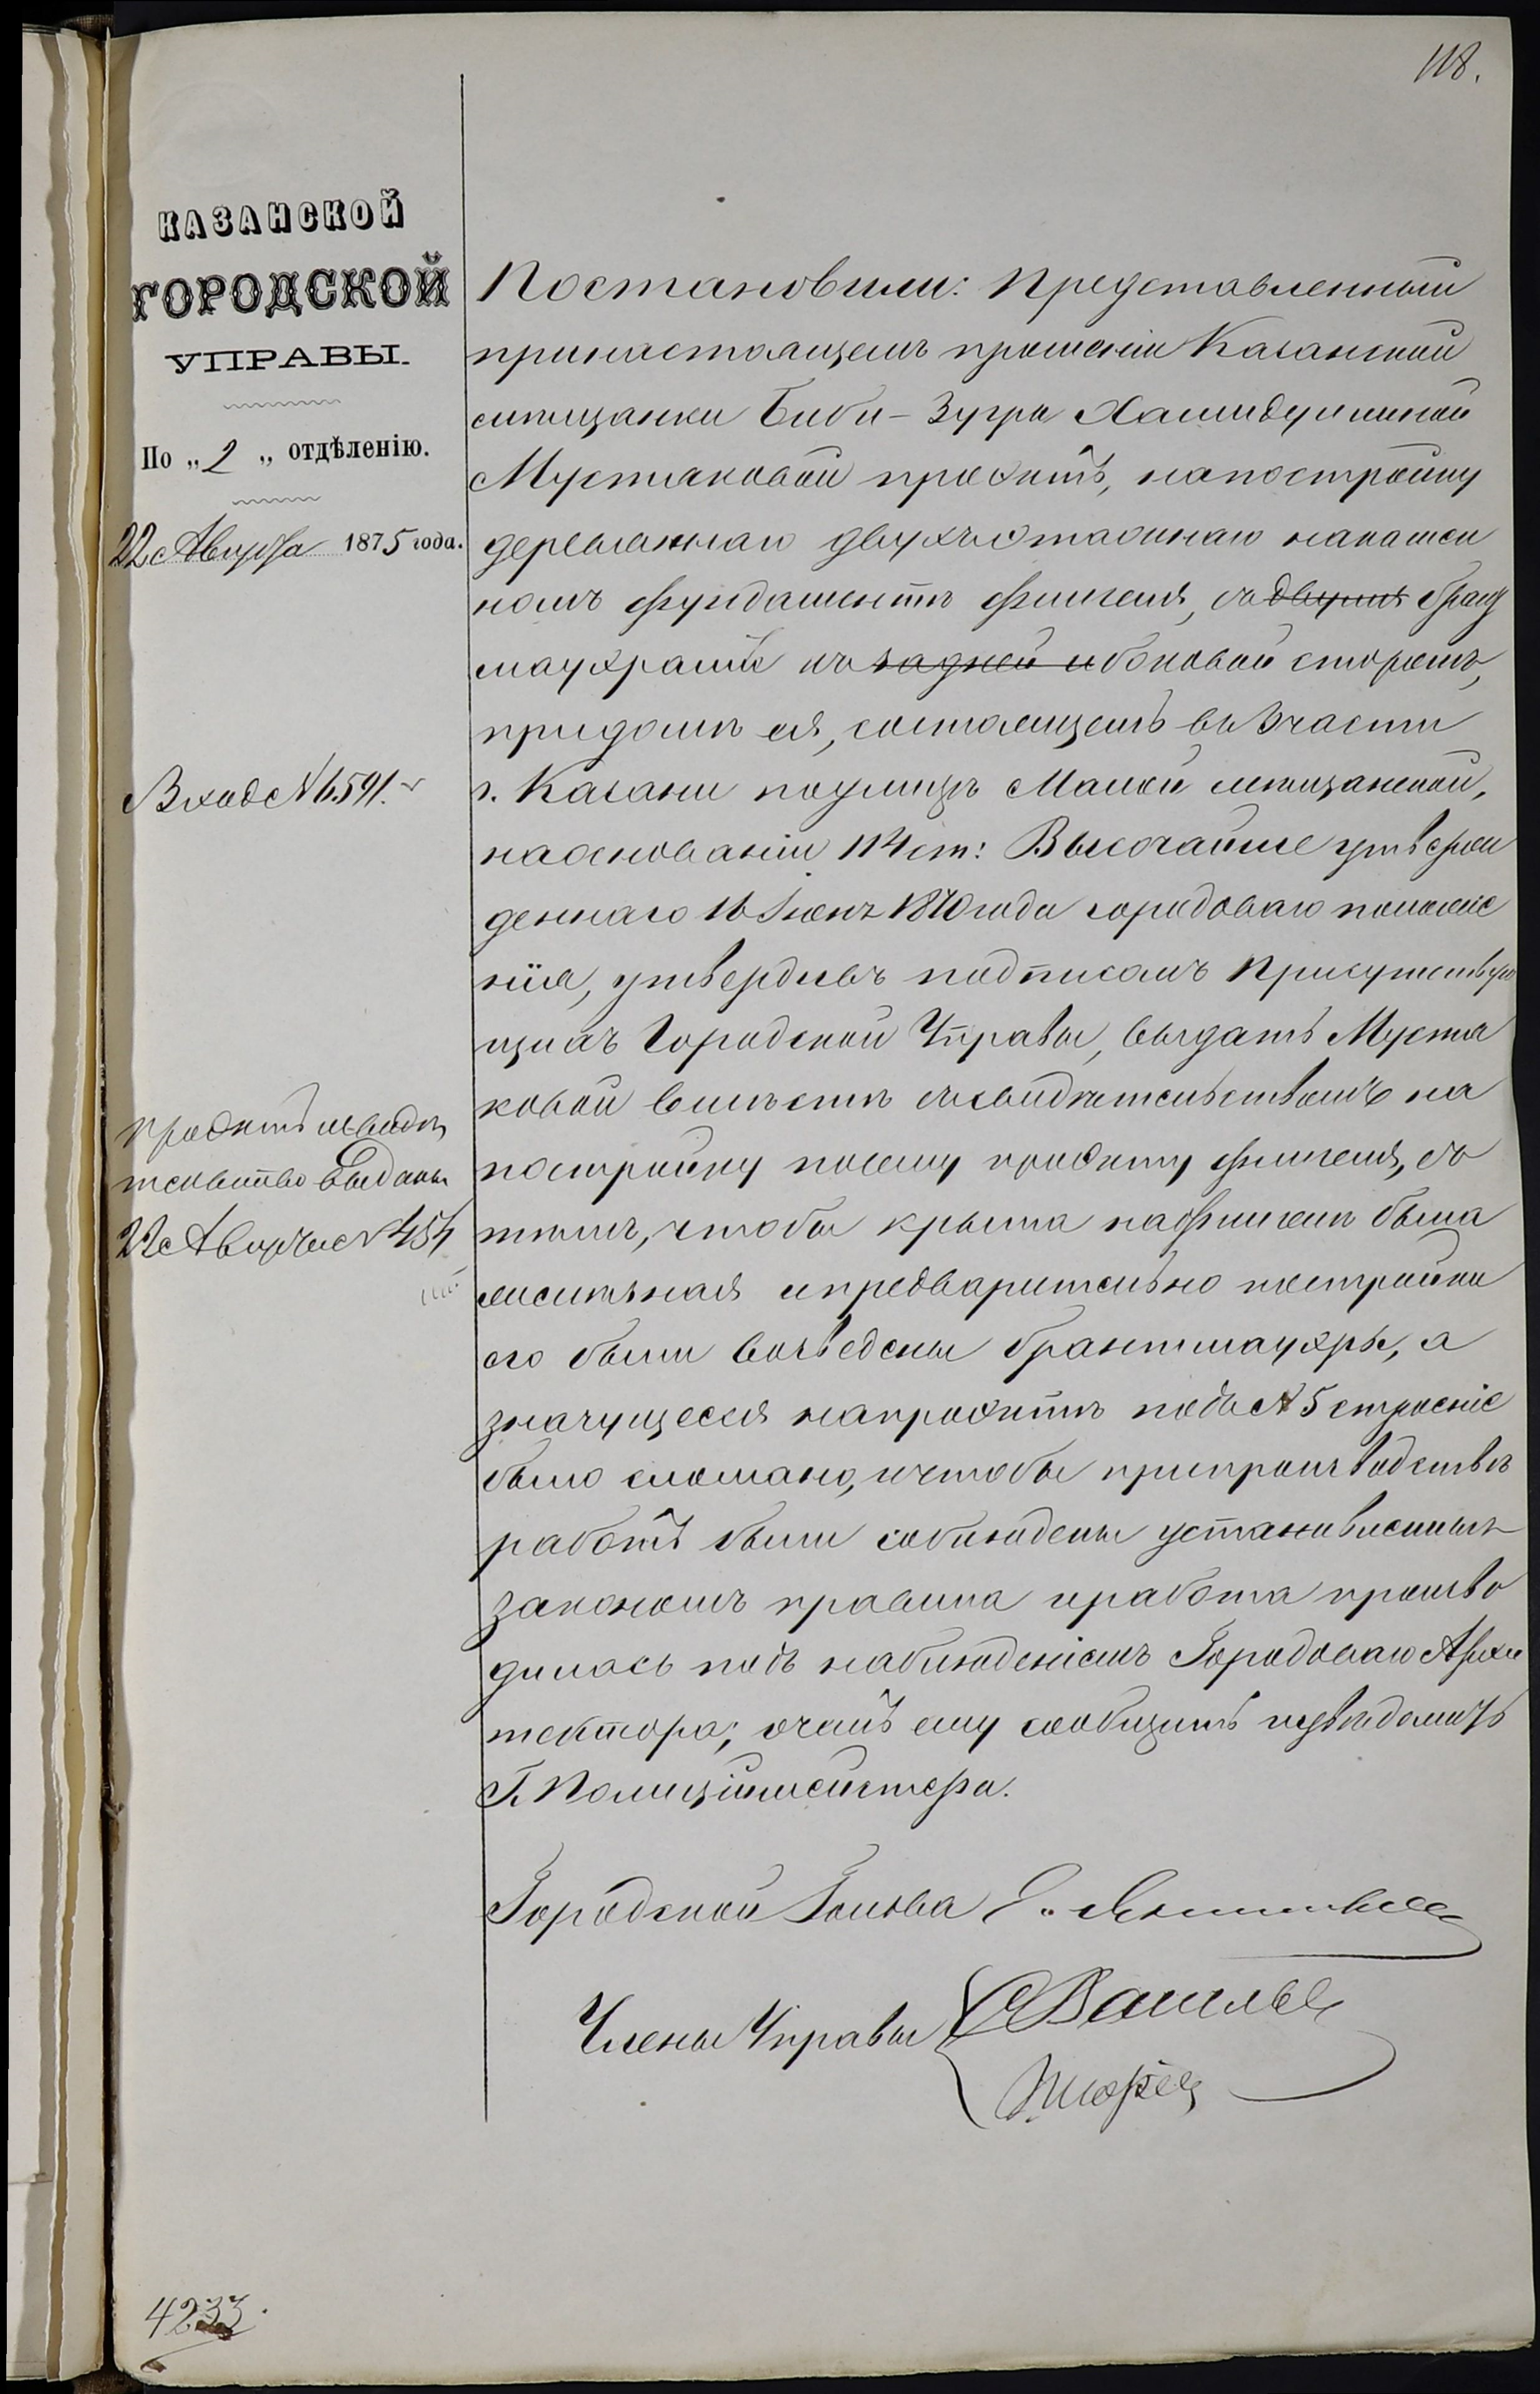 118.
КАЗАНСКОЙ
ГОРОДСКОЙ
УПРАВЫ.
По „2„ отдѣленію.
22 Августа 1875 года.
Вход № 6591.
Проэктъ и свидѣ
тельство выданы
22 Августа № 454
Постановили: Представленный
принастоящемъ прошеніи Казанской
мѣщанки Биби-Зугры Хамидуллиной
Мустаковой проэктъ, напостройку
деревяннаго двухъэтажнаго накамен
номъ фундаментѣ флигеля, съ двумя бранд
мауэрами въ задней и боковой сторонѣ,
придомѣ ея, состоящемъ въ 3 части
г. Казани поулицѣ Малой мѣщанской,
наоснованіи 114 ст: Высочайше утвержд
деннаго 16 Іюня 1870 года городоваго положе
нія, утвердивъ подписомъ Присутствую
щихъ Городской Управы, выдать Муста
ковой вмѣстѣ съ свидѣтельствомъ на
постройку посему проэкту флигеля, съ
тѣмъ, чтобы крыша нафлигелѣ была
желѣзная и предварительно постройки
его были возведены брантмауэры, а
значущееся напроэктѣ подъ № 5 строеніе
было сломано, ичтобы припроизводствѣ
работъ были соблюдены установленныя
закономъ правила иработа произво
дилась подъ наблюденіемъ Городоваго Архи
тектора; очемъ ему сообщить иувѣдомить
Г. Полиціймейстера.
Городской Голова Е.
Члены Управы
4233.